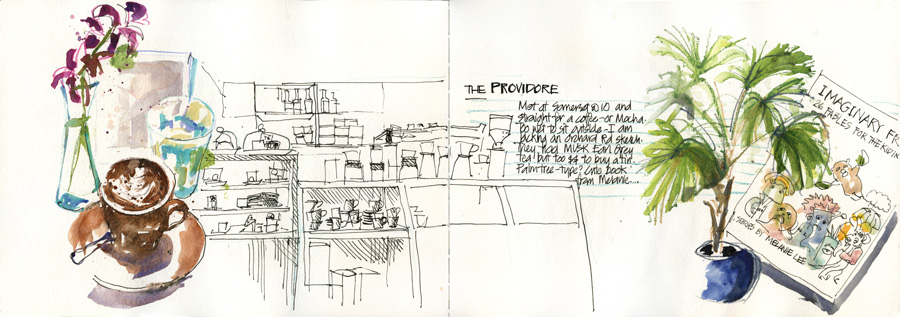 THE PROVIDORE
Met at Somerset @ 10 and
straight for a coffee - or Mocha.
to sit outside - I am
lacking an Orchard Rd sketch.
They had MUSK Earl Grey
Tea! but too $$ to buy a tin.
Palm tree-type? Cute Book
from Melanie...
IMAGINARY FR
26 FABLES FOR THE KID IN
STORIES BY MELANIE LEE